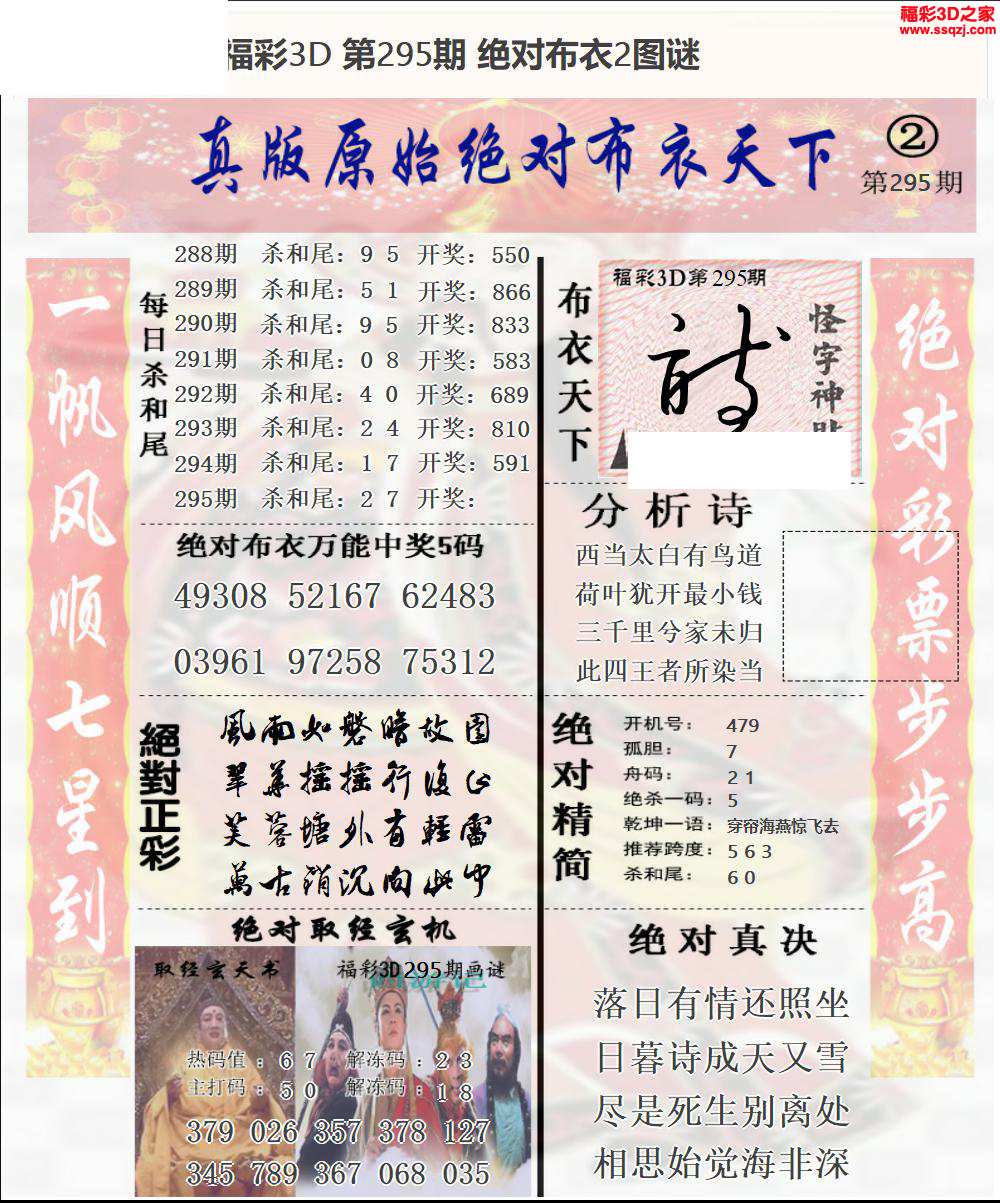 福彩3D之家
www.ssqzj.com
福彩3D 第295期 绝对布衣2图谜
真版原始绝对布衣天下
②
第295期
一帆风顺七星到
每日杀和尾
288期 杀和尾：9 5 开奖：550
289期 杀和尾：5 1 开奖：866
290期 杀和尾：9 5 开奖：833
291期 杀和尾：0 8 开奖：583
292期 杀和尾：4 0 开奖：689
293期 杀和尾：2 4 开奖：810
294期 杀和尾：1 7 开奖：591
295期 杀和尾：2 7 开奖：
绝对布衣万能中奖5码
49308 52167 62483
03961 97258 75312
絕對正彩
風雨如磐暗故园
翠華摇摇行復止
芙蓉塘外有輕雷
萬古消沉向此中
绝对取经玄机
取经玄天书
福彩3D295期画谜
热码值：6 7 解冻码：2 3
主打码：5 0 解冻码：1 8
379 026 357 378 127
345 789 367 068 035
布衣天下
福彩3D第295期
怪字神
分析诗
西当太白有鸟道
荷叶犹开最小钱
三千里兮家未归
此四王者所染当
绝对精简
开机号：479
孤胆：7
舟码：2 1
绝杀一码：5
乾坤一语：穿帘海燕惊飞去
推荐跨度：5 6 3
杀和尾：6 0
绝对真决
落日有情还照坐
日暮诗成天又雪
尽是死生别离处
相思始觉海非深
绝对彩票步步高